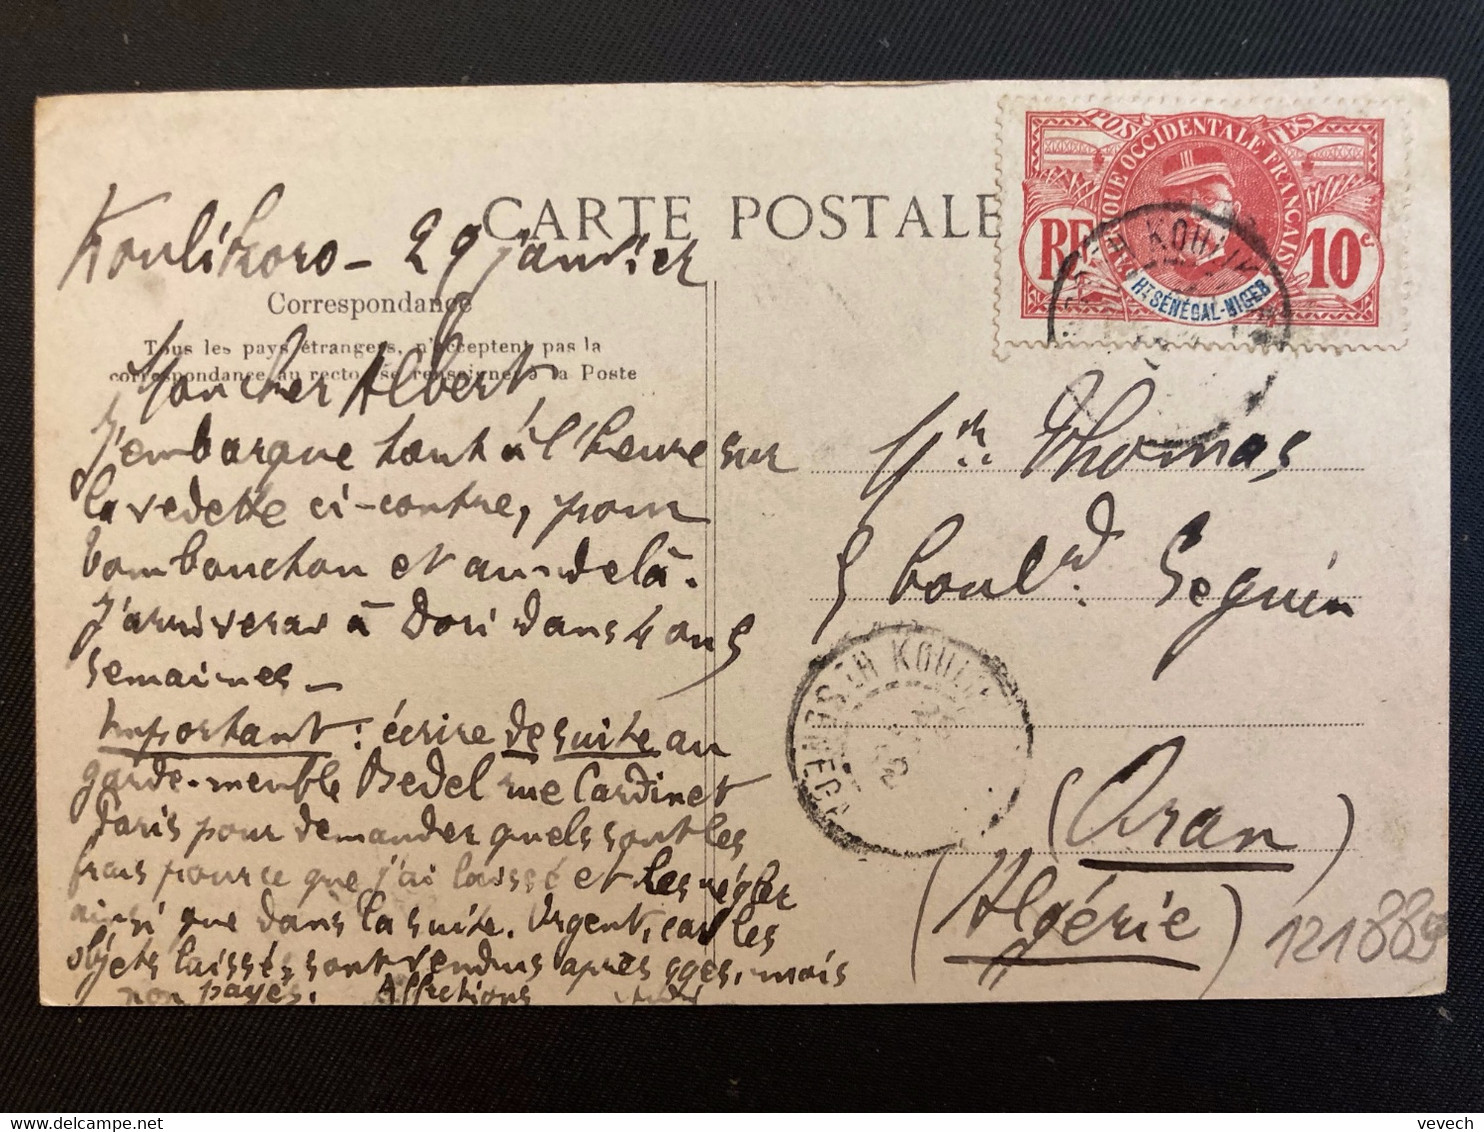 CARTE POSTALE
Koulikoro - 29 janvier
Correspondance
Tous les pays étrangers, n'acceptent pas la
correspondance au recto, se renseigner à la Poste
Mon cher Albert
J'embarque tout à l'heure sur
la vedette ci-contre, pour
Tombouctou et au-delà.
J'arriverai à Dori dans 4 ou 5
semaines -
Important : écrire de suite au
garde-meuble Bedel rue Cardinet
Paris pour demander quels sont les
frais pour ce que j'ai laissé et les régler
ainsi que dans la suite. Urgent, car les
objets laissés sont vendus après qques. mois
non payés. Affections
POSTES
AFRIQUE OCCIDENTALE FRANÇAISE
RF
10 c.
Ht SÉNÉGAL-NIGER
KOULIK
Mr. Thomas
5 boul.d Seguin
KOULIK
(Oran)
(Algérie)
121889
vevech